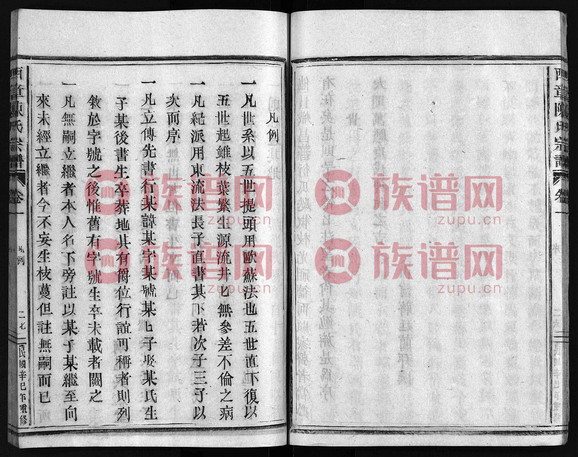 凡例
一凡世系以五世提頭用歐蘇法也五世直下復以
五世起雖枝葉繁生源流井匕無參差不倫之病
一凡紀派用東流法長子直書其下若次子三子以
次而序
一凡立傳先書行某諱某字某號某匕子娶某氏生
子某後書生卒葬地其有爵位行誼可稱者則列
敘於字號之後惟舊有字號生卒未載者闕之
一凡無嗣立繼者本人名下旁註以某子某繼至向
來未經立繼者今不妄生枝蔓但註無嗣而已
西章陳氏宗譜
卷一
凡例
二七
民國辛巳年重修
西章陳氏宗譜
卷一
族谱网
zupu.cn
族谱网
zupu.cn
族谱网
zupu.cn
族谱网
zupu.cn